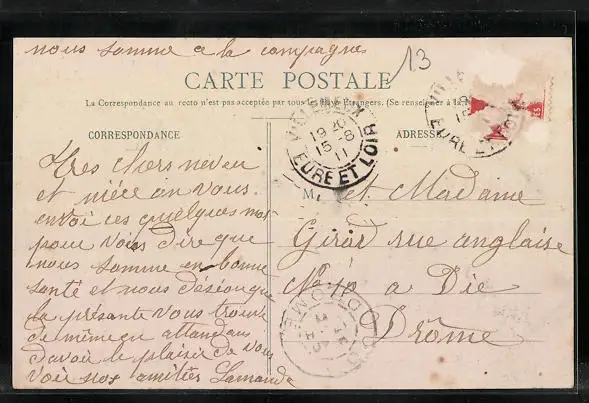 nous somme a la compagne
13
CARTE POSTALE
La Correspondance au recto n'est pas acceptée par tous les Pays Etrangers. (Se renseigner à la
CORRESPONDANCE
ADRESSE
19 20
15 - 8
11
EURE ET LOIR
EURE ET LOIR
Tres chers neveu
et niéce on vous
envoi ces quelques mot
pour vous dire que
nous somme en bonne
santé et nous désiron que
la présente vous trouve
de même en attendant
d'avoir le plaisir de vous
voir nos amitiés Lamande
M. et Madame
Girard rue anglaise
No 10 a Die
Drôme
DROME